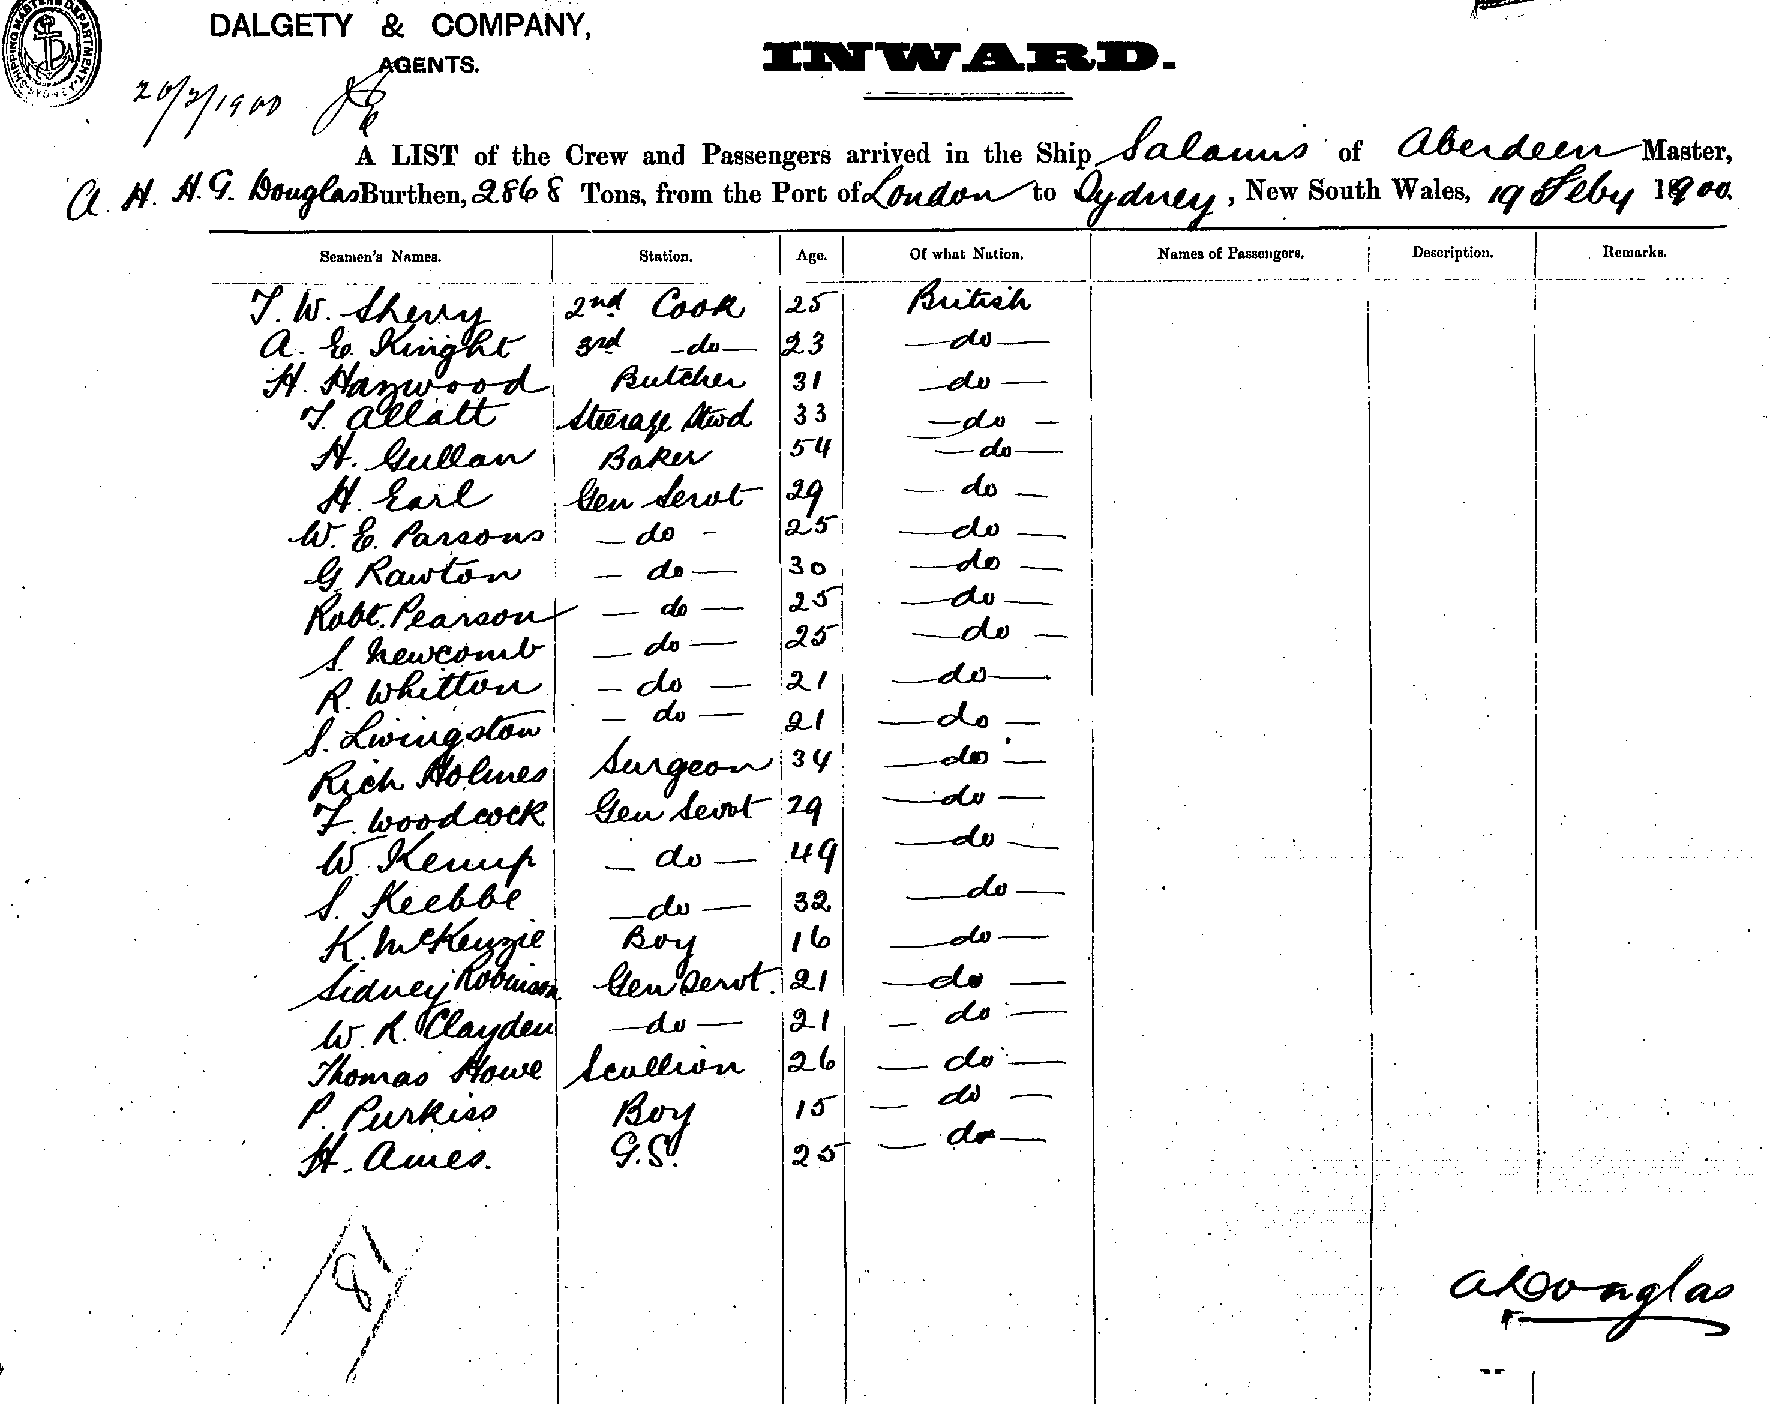 DALGETY & COMPANY,
AGENTS.
INWARD.
20/2/1900
A LIST of the Crew and Passengers arrived in the Ship Salamis of Aberdeen Master,
A. H. H. G. Douglas Burthen, 2868 Tons, from the Port of London to Sydney, New South Wales, 19 Feby 1900.
Seamen's Names. Station. Age. Of what Nation. Names of Passengers. Description. Remarks.
T. W. Sherry 2nd Cook 25 British
A. E. Knight 3rd -do- 23 -do-
H. Haywood Butcher 31 -do-
T. Allatt Steerage Stwd 33 -do-
H. Gullan Baker 54 -do-
H. Earl Gen Servt 29 -do-
W. E. Parsons -do- 25 -do-
G. Rawton -do- 30 -do-
Robt. Pearson -do- 25 -do-
S. Newcomb -do- 25 -do-
R. Whitton -do- 21 -do-
S. Livingston -do- 21 -do-
Rich Holmes Surgeon 34 -do-
F. Woodcock Gen Servt 29 -do-
W. Kemp -do- 49 -do-
S. Keebbe -do- 32 -do-
K. McKenzie Boy 16 -do-
Sidney Robinson Gen Servt. 21 -do-
W. R. Clayden -do- 21 -do-
Thomas Howe Scullion 26 -do-
P. Purkiss Boy 15 -do-
H. Ames. G.S. 25 -do-
81
A Douglas